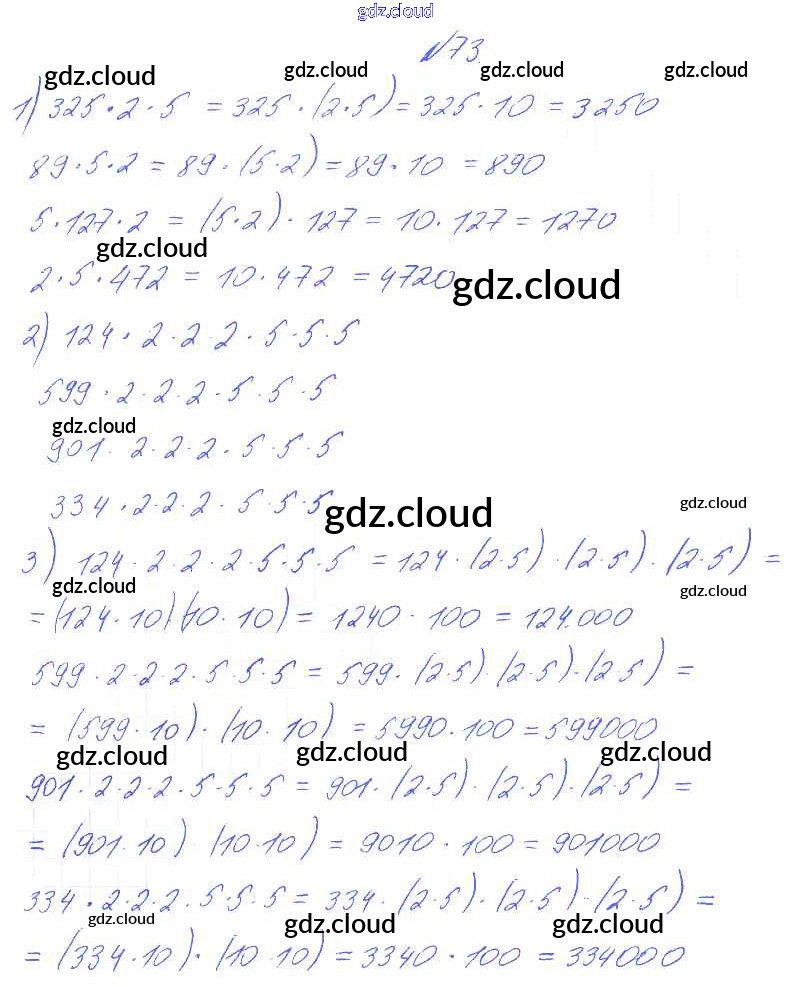 gdz.cloud
№73.
gdz.cloud gdz.cloud gdz.cloud
1) 325 · 2 · 5 = 325 · (2·5) = 325 · 10 = 3250
89 · 5 · 2 = 89 · (5·2) = 89 · 10 = 890
5 · 127 · 2 = (5·2) · 127 = 10 · 127 = 1270
gdz.cloud
2 · 5 · 472 = 10 · 472 = 4720
gdz.cloud
2) 124 · 2 · 2 · 2 · 5 · 5 · 5
599 · 2 · 2 · 2 · 5 · 5 · 5
gdz.cloud
901 · 2 · 2 · 2 · 5 · 5 · 5
334 · 2 · 2 · 2 · 5 · 5 · 5
gdz.cloud gdz.cloud
3) 124 · 2 · 2 · 2 · 5 · 5 · 5 = 124 · (2·5) · (2·5) · (2·5) =
gdz.cloud gdz.cloud
= (124 · 10)(10 · 10) = 1240 · 100 = 124.000
599 · 2 · 2 · 2 · 5 · 5 · 5 = 599 · (2·5) · (2·5) · (2·5) =
= (599 · 10) · (10 · 10) = 5990 · 100 = 599000
gdz.cloud gdz.cloud gdz.cloud
901 · 2 · 2 · 2 · 5 · 5 · 5 = 901 · (2·5) · (2·5) · (2·5) =
= (901 · 10) · (10 · 10) = 9010 · 100 = 901000
334 · 2 · 2 · 2 · 5 · 5 · 5 = 334 · (2·5) · (2·5) · (2·5) =
gdz.cloud gdz.cloud gdz.cloud
= (334 · 10) · (10 · 10) = 3340 · 100 = 334000